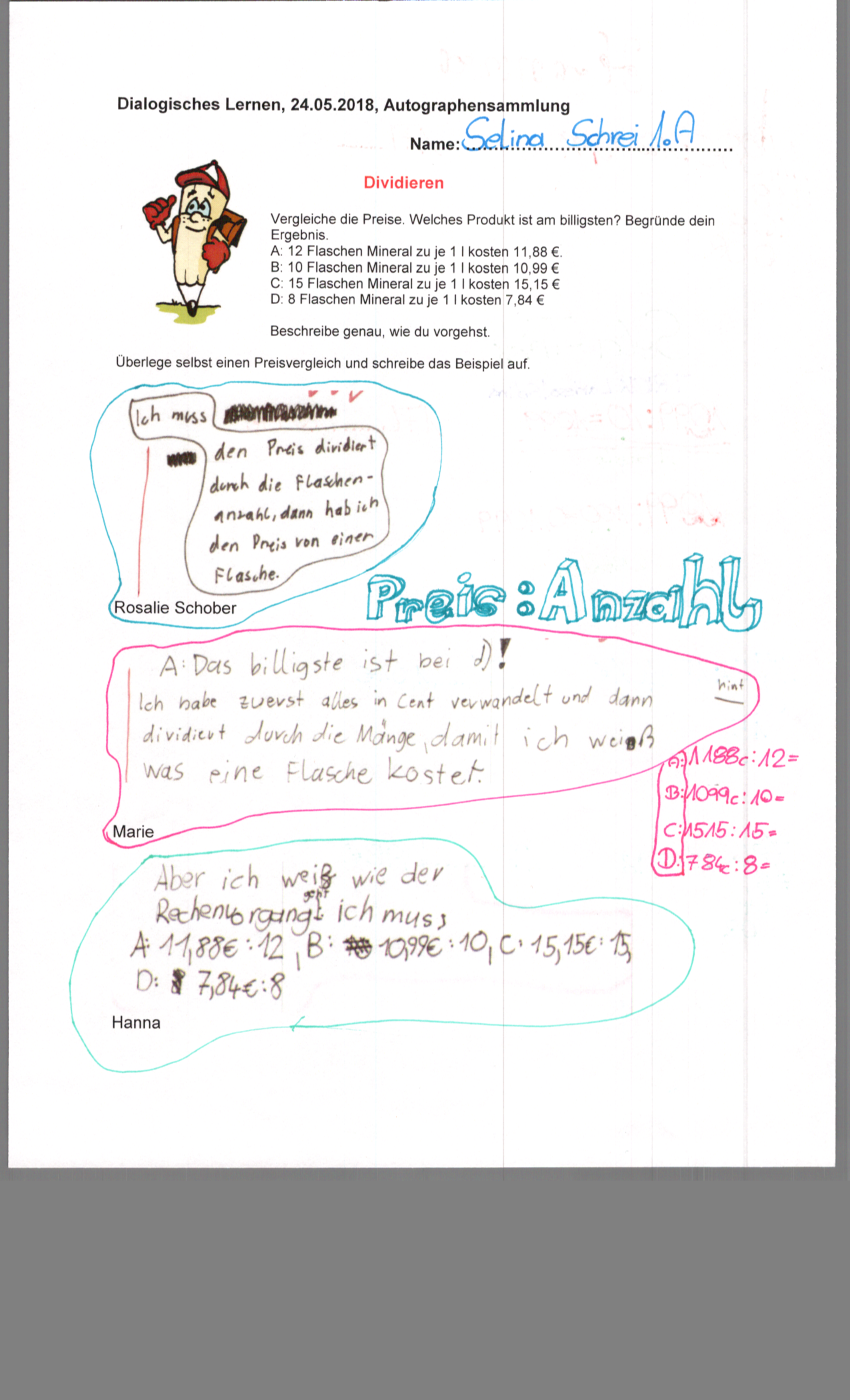 Dialogisches Lernen, 24.05.2018, Autographensammlung
Name: Selina Schrei 1.A
Dividieren
Vergleiche die Preise. Welches Produkt ist am billigsten? Begründe dein
Ergebnis.
A: 12 Flaschen Mineral zu je 1 l kosten 11,88 €.
B: 10 Flaschen Mineral zu je 1 l kosten 10,99 €
C: 15 Flaschen Mineral zu je 1 l kosten 15,15 €
D: 8 Flaschen Mineral zu je 1 l kosten 7,84 €
Beschreibe genau, wie du vorgehst.
Überlege selbst einen Preisvergleich und schreibe das Beispiel auf.
Ich muss
den Preis dividiert
durch die Flaschen-
anzahl, dann hab ich
den Preis von einer
Flasche.
Rosalie Schober
Preis:Anzahl
A: Das billigste ist bei d)!
Ich habe zuerst alles in Cent verwandelt und dann
dividiert durch die Mänge, damit ich weiß
was eine Flasche kostet.
Marie
A: 1188c:12=
B: 1099c:10=
C: 1515:15=
D: 784c:8=
Aber ich weiß wie der
Rechenvorgang geht ich muss
A: 11,88€:12, B: 10,99€:10, C: 15,15€:15,
D: 7,84€:8
Hanna